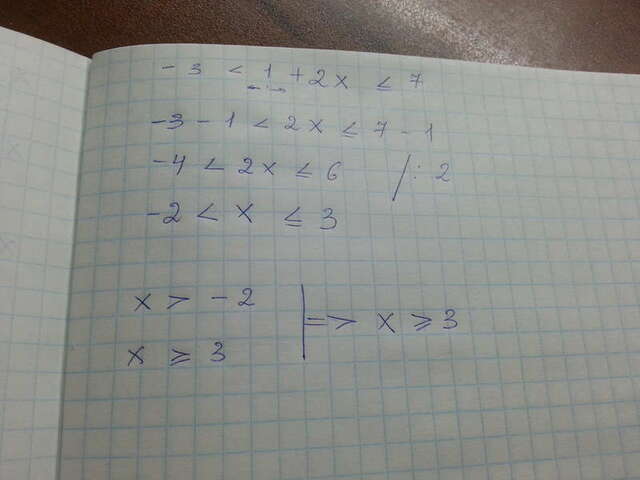 -3 < 1 + 2x ≤ 7
-3 - 1 < 2x ≤ 7 - 1
-4 < 2x ≤ 6 /: 2
-2 < x ≤ 3
x > -2
x ≥ 3 | => x ≥ 3